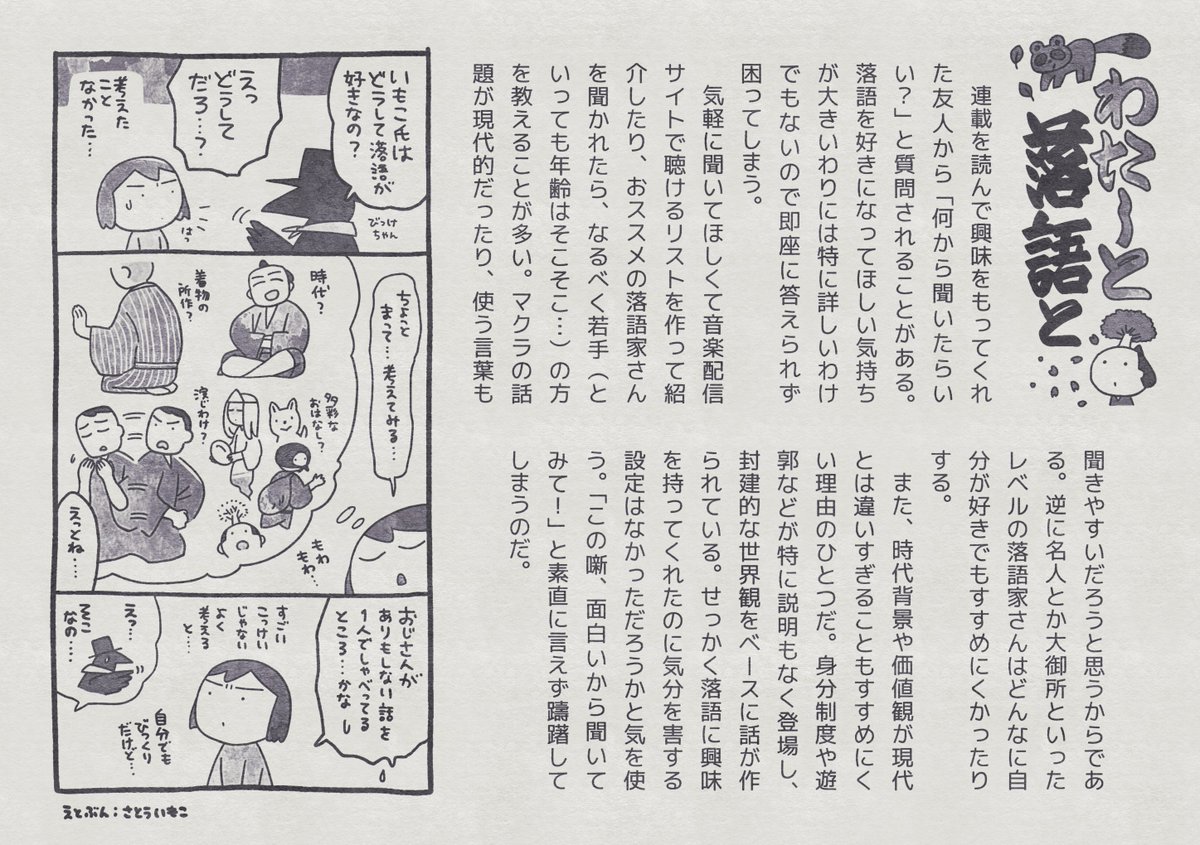 わたしと
落語と
　連載を読んで興味をもってくれ
た友人から「何から聞いたらい
い？」と質問されることがある。
落語を好きになってほしい気持ち
が大きいわりには特に詳しいわけ
でもないので即座に答えられず
困ってしまう。
　気軽に聞いてほしくて音楽配信
サイトで聴けるリストを作って紹
介したり、おススメの落語家さん
を聞かれたら、なるべく若手（と
いっても年齢はそこそこ…）の方
を教えることが多い。マクラの話
題が現代的だったり、使う言葉も
聞きやすいだろうと思うからであ
る。逆に名人とか大御所といった
レベルの落語家さんはどんなに自
分が好きでもすすめにくかったり
する。
　また、時代背景や価値観が現代
とは違いすぎることもすすめにく
い理由のひとつだ。身分制度や遊
郭などが特に説明もなく登場し、
封建的な世界観をベースに話が作
られている。せっかく落語に興味
を持ってくれたのに気分を害する
設定はなかっただろうかと気を使
う。「この噺、面白いから聞いて
みて！」と素直に言えず躊躇して
しまうのだ。
いもこ氏は
どうして落語が
好きなの？
びっけ
ちゃん
えっ
どうして
だろ…？
はっ
考えた
こと
なかった…
ちょっと
まって…考えてみる…
時代？
着物の
所作？
多彩な
おはなし？
演じわけ？
もわ
もわ…
えっとね…
おじさんが
ありもしない話を
1人でしゃべってる
ところ…かなし
すごい
こっけい
じゃない
よく
考えると…
えっ…
そこ
なの…
自分でも
びっくり
だけど…
えとぶん：さとういもこ